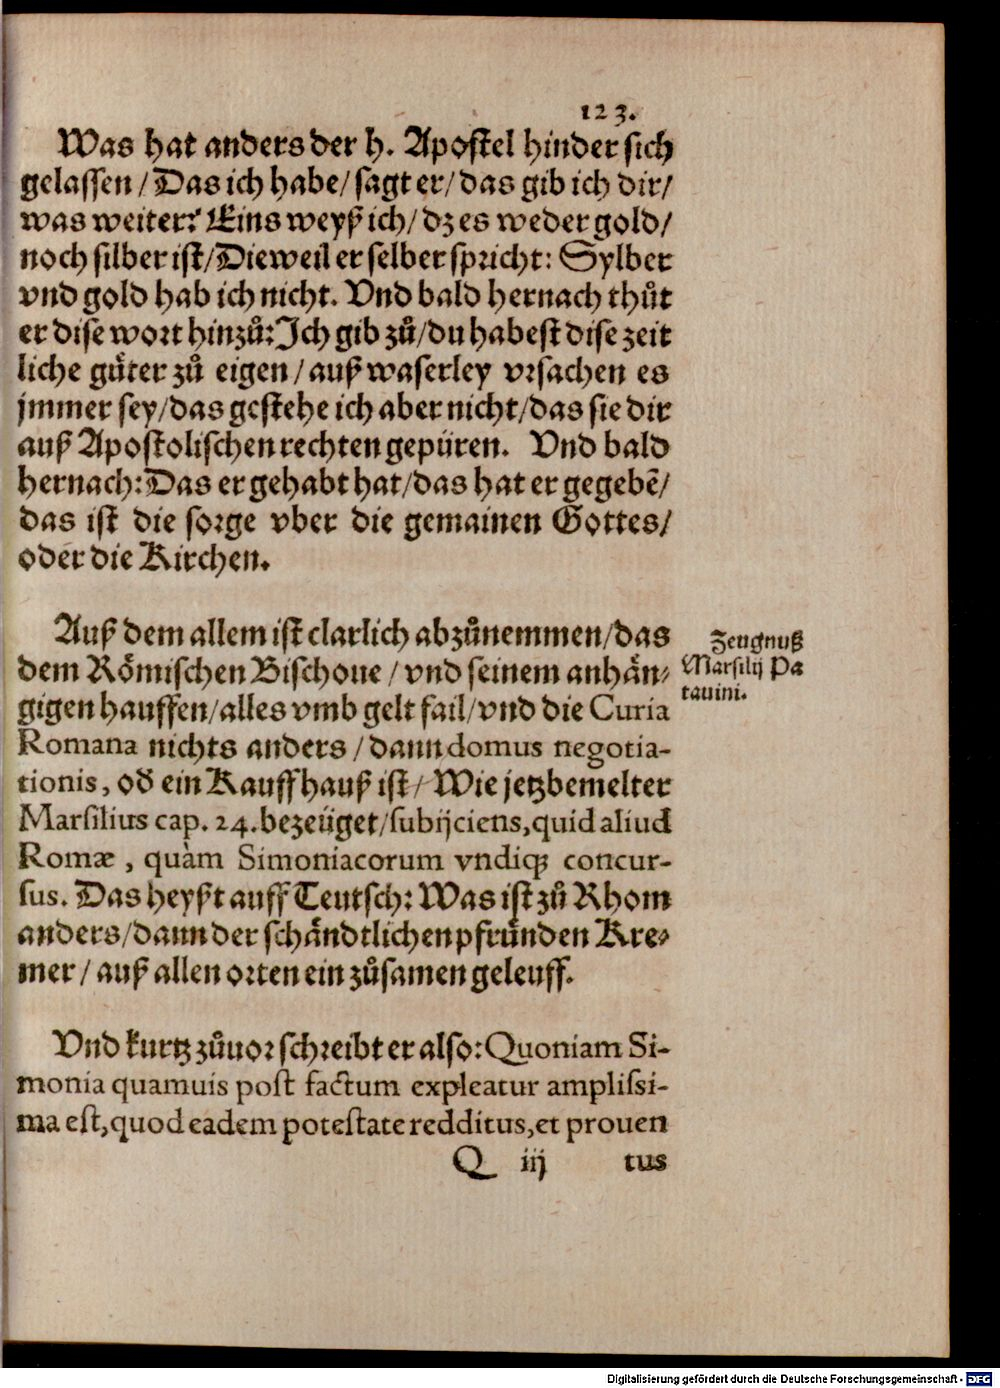 123.
Was hat anders der h. Apostel hinder sich
gelassen / Das ich habe / sagt er / das gib ich dir /
was weiter? Eins weyß ich / dz es weder gold /
noch silber ist / Dieweil er selber spricht: Sylber
vnd gold hab ich nicht. Vnd bald hernach thůt
er dise wort hinzů: Ich gib zů / du habest dise zeit
liche gůter zů eigen / auß waserley vrsachen es
jmmer sey / das gestehe ich aber nicht / das sie dir
auß Apostolischen rechten gepüren. Vnd bald
hernach: Das er gehabt hat / das hat er gegebẽ /
das ist die sorge vber die gemainen Gottes /
oder die Kirchen.
Auß dem allem ist clarlich abzůnemmen / das
dem Römischen Bischoue / vnd seinem anhän⸗
gigen hauffen / alles vmb gelt fail / vnd die Curia
Romana nichts anders / dann domus negotia-
tionis, oď ein Kauffhauß ist / Wie jetzbemelter
Marsilius cap. 24. bezeüget / subijciens, quid aliud
Romæ, quàm Simoniacorum vndiqꝫ concur-
sus. Das heyßt auff Teutsch: Was ist zů Rhom
anders / dann der schändtlichen pfrůnden Kre⸗
mer / auß allen orten ein zůsamen geleuff.
Zeugnuß
Marsilij Pa
tauini.
Vnd kurtz zůuor schreibt er also: Quoniam Si-
monia quamuis post factum expleatur amplissi-
ma est, quod eadem potestate redditus, et prouen
Q iij tus
Digitalisierung gefördert durch die Deutsche Forschungsgemeinschaft - DFG